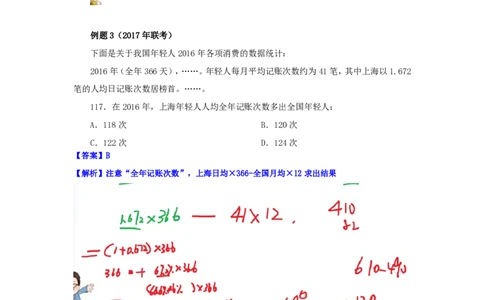 例题3（2017年联考）
下面是关于我国年轻人2016年各项消费的数据统计：
2016年（全年366天），……。年轻人每月平均记账次数约为41笔，其中上海以1.672
笔的人均日记账次数居榜首。……。
117. 在2016年，上海年轻人人均全年记账次数多出全国年轻人：
A. 118次 B. 120次
C. 122次 D. 124次
【答案】B
【解析】注意“全年记账次数”，上海日均×366-全国月均×12求出结果
1.672×366 — 41×12. 410
82
=(1+0.672)×366
366 + 67.2%×366 610-490